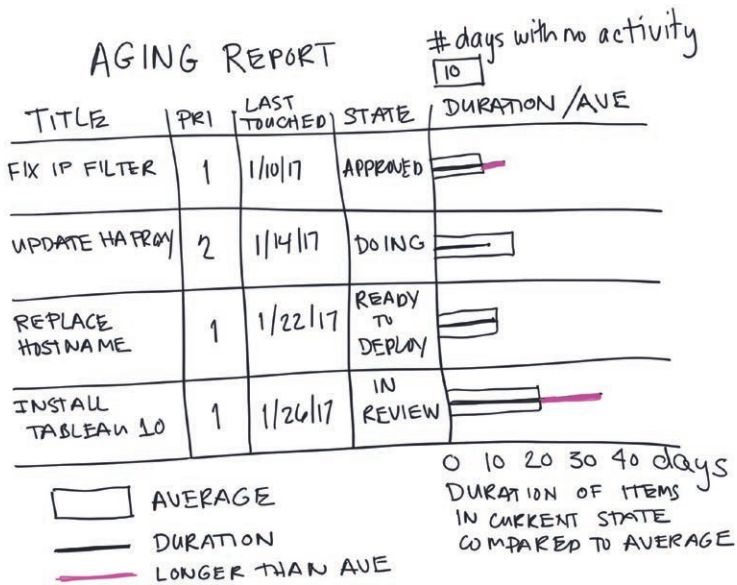 AGING REPORT
# days with no activity
10
TITLE PRI LAST TOUCHED STATE DURATION / AVE
FIX IP FILTER 1 1/10/17 APPROVED
UPDATE HAPROXY 2 1/14/17 DOING
REPLACE
HOSTNAME 1 1/22/17 READY
TO
DEPLOY
INSTALL
TABLEAU 10 1 1/26/17 IN
REVIEW
0 10 20 30 40 days
DURATION OF ITEMS
IN CURRENT STATE
COMPARED TO AVERAGE
AVERAGE
DURATION
LONGER THAN AVE